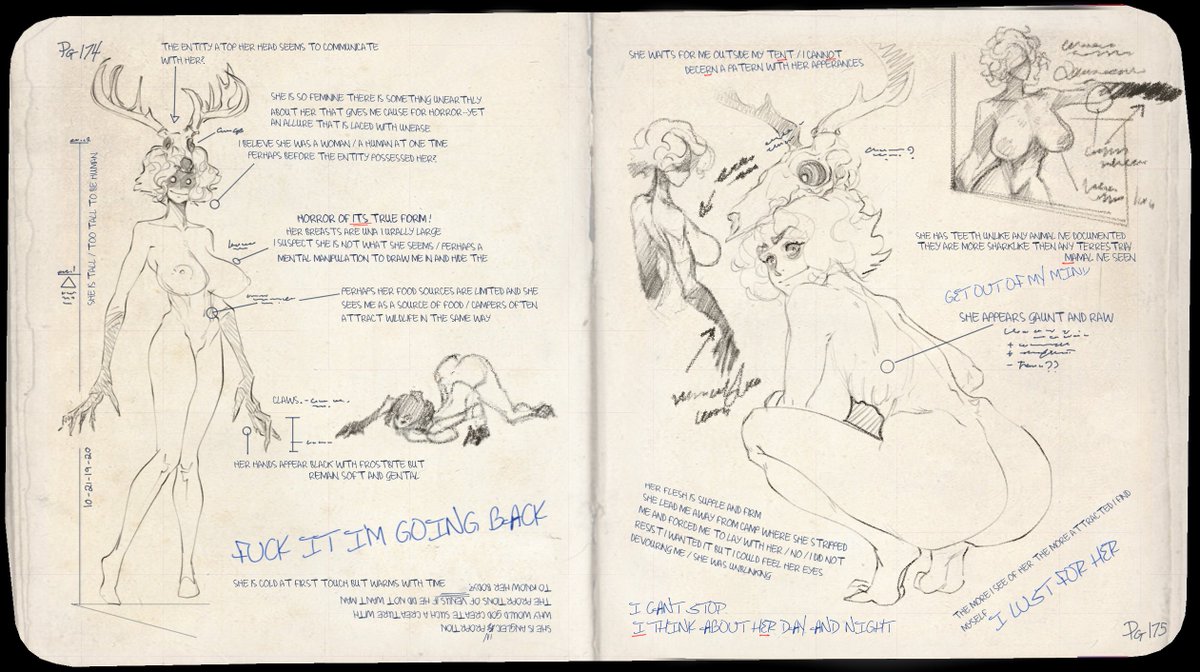 Pg 174
THE ENTITY ATOP HER HEAD SEEMS TO COMMUNICATE
WITH HER?
SHE IS SO FEMININE THERE IS SOMETHING UNEARTHLY
ABOUT HER THAT GIVES ME CAUSE FOR HORROR-YET
AN ALLURE THAT IS LACED WITH UNEASE
I BELIEVE SHE WAS A WOMAN / A HUMAN AT ONE TIME
PERHAPS BEFORE THE ENTITY POSSESSED HER?
SHE IS TALL / TOO TALL TO BE HUMAN
HORROR OF ITS TRUE FORM!
HER BREASTS ARE UNATURALLY LARGE
I SUSPECT SHE IS NOT WHAT SHE SEEMS / PERHAPS A
MENTAL MANIPULATION TO DRAW ME IN AND HIDE THE
PERHAPS HER FOOD SOURCES ARE LIMITED AND SHE
SEES ME AS A SOURCE OF FOOD / CAMPERS OFTEN
ATTRACT WILDLIFE IN THE SAME WAY
CLAWS.-
HER HANDS APPEAR BLACK WITH FROSTBITE BUT
REMAIN SOFT AND GENTAL
10-21-19-20
FUCK IT IM GOING BACK
SHE IS COLD AT FIRST TOUCH BUT WARMS WITH TIME
SHE IS ANGELIC IN PROPRTION
WHY WOULD GOD CREATE SUCH A CREATURE WITH
THE PROPRTIONS OF VENUS IF HE DID NOT WANT MAN
TO KNOW HER BODY?
SHE WAITS FOR ME OUTSIDE MY TENT / I CANNOT
DECERN A PATERN WITH HER APPERANCES
SHE HAS TEETH UNLIKE ANY ANIMAL IVE DOCUMENTED
THEY ARE MORE SHARKLIKE THEN ANY TERRESTRIAL
MAMAL IVE SEEN
GET OUT OF MY MIND
SHE APPEARS GAUNT AND RAW
HER FLESH IS SUPPLE AND FIRM
SHE LEAD ME AWAY FROM CAMP WHERE SHE STRIPPED
ME AND FORCED ME TO LAY WITH HER / NO / I DID NOT
RESIST I WANTED IT BUT I COULD FEEL HER EYES
DEVOURING ME / SHE WAS UNBLINKING
I CANT STOP
I THINK ABOUT HER DAY AND NIGHT
THE MORE I SEE OF HER THE MORE ATTRACTED I FIND
MYSELF
I LUST FOR HER
Pg 175